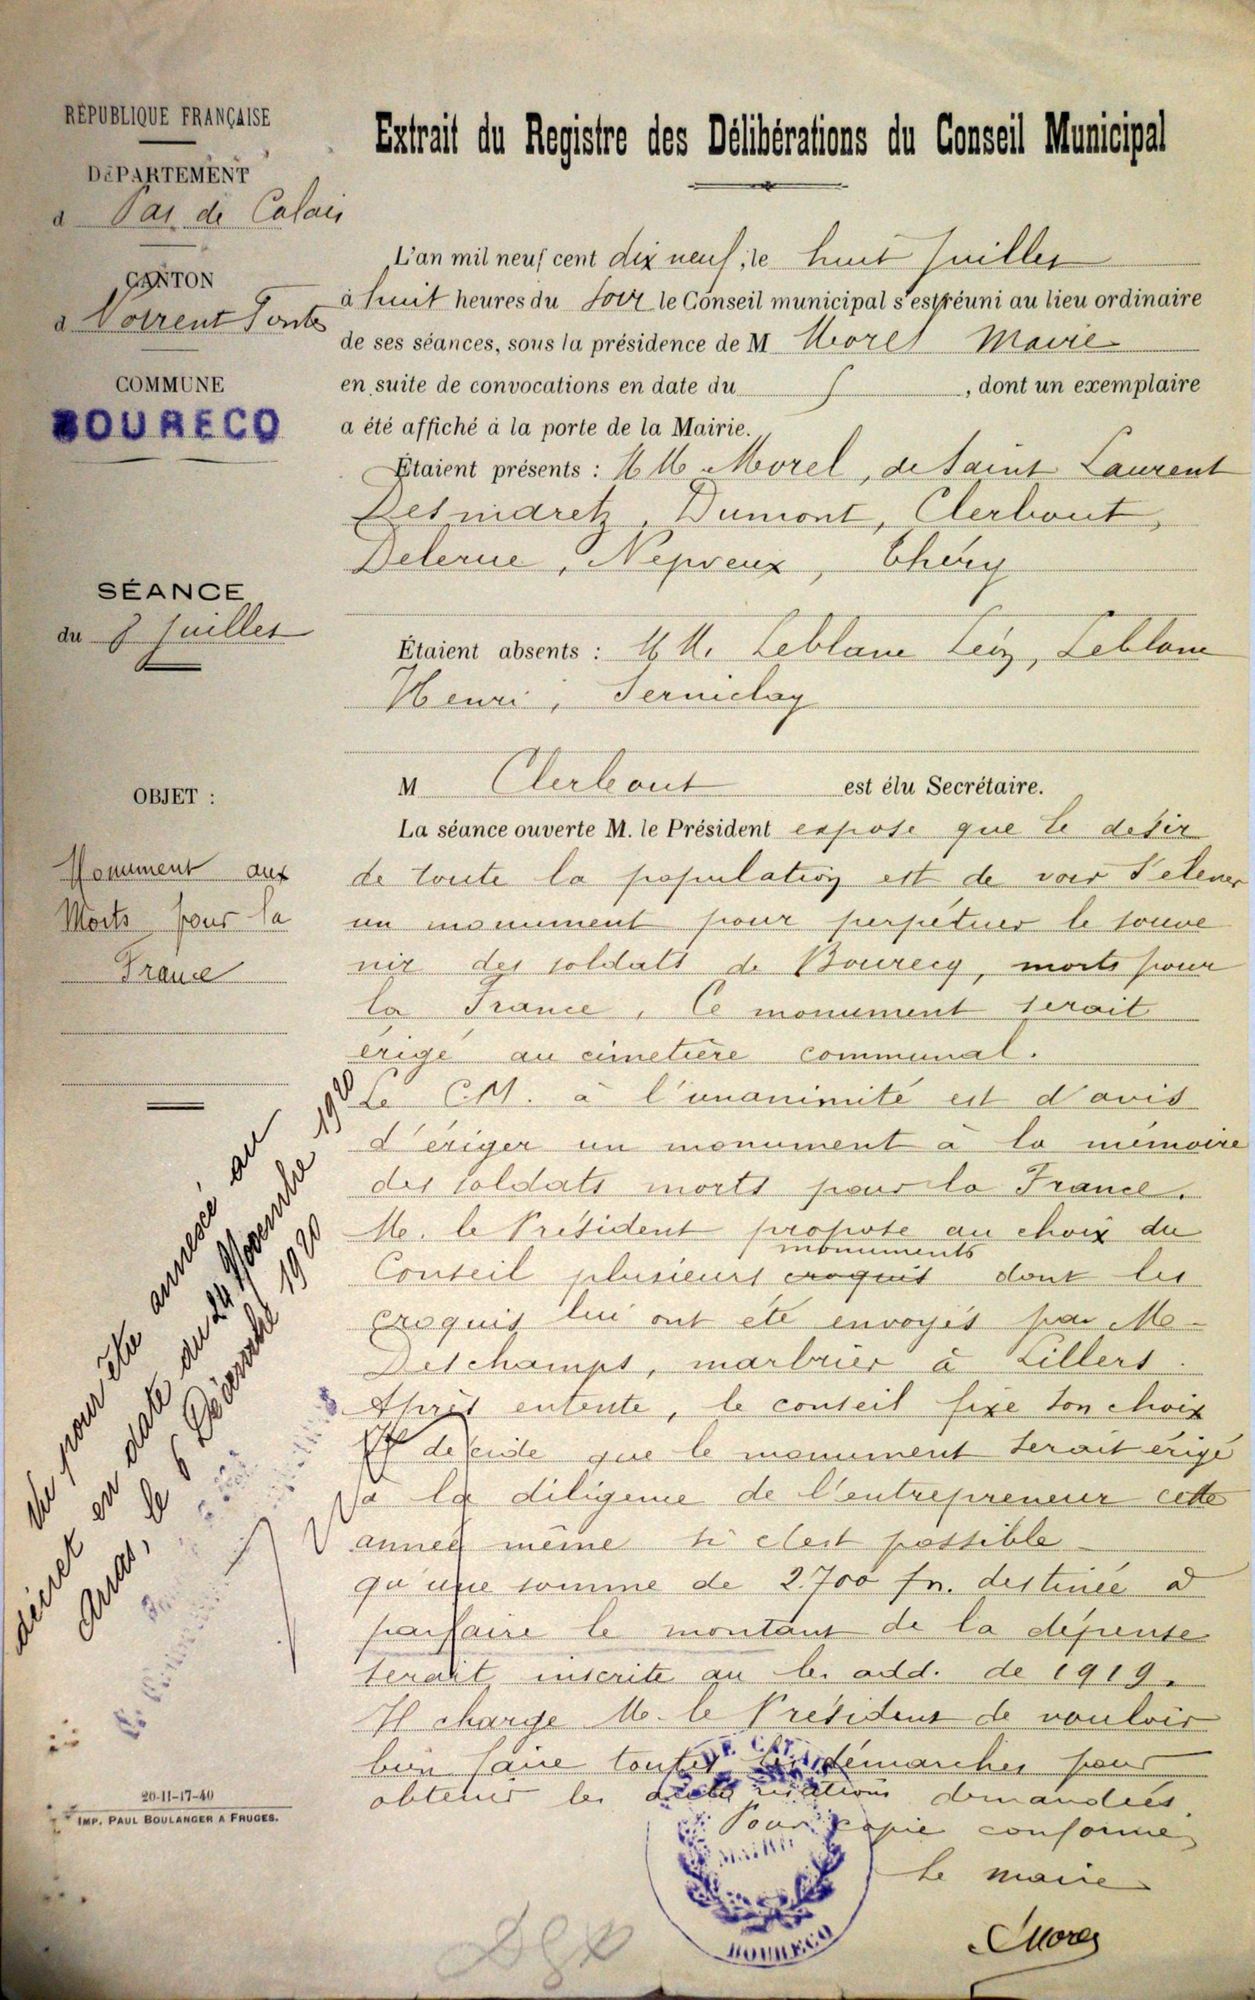 RÉPUBLIQUE FRANÇAISE
DÉPARTEMENT
d Pas de Calais
CANTON
d Norrent Fontes
COMMUNE
BOURECQ
SÉANCE
du 8 Juillet
OBJET :
Monument aux
Morts pour la
France
Extrait du Registre des Délibérations du Conseil Municipal
L'an mil neuf cent dix neuf, le huit Juillet
à huit heures du soir le Conseil municipal s'est réuni au lieu ordinaire
de ses séances, sous la présidence de M Morel Maire
en suite de convocations en date du , dont un exemplaire
a été affiché à la porte de la Mairie.
Étaient présents : MM Morel, de Saint Laurent
Desmaretz, Dumont, Clerbout,
Delerue, Nepveux, Théry
Étaient absents : MM. Leblanc Léon, Leblanc
Henri,
M Clerbout est élu Secrétaire.
La séance ouverte M. le Président expose que le désir
de toute la population est de voir s'élever
un monument pour perpétuer le souve
nir des soldats de Bourecq, morts pour
la France. Ce monument serait
érigé au cimetière communal.
Le C.M. à l'unanimité est d'avis
d'ériger un monument à la mémoire
des soldats morts pour la France.
M. le Président propose au choix du
monuments
Conseil plusieurs croquis dont les
croquis lui ont été envoyés par M.
Deschamps, marbrier à Lillers.
Après entente, le conseil fixe son choix
Il décide que le monument serait érigé
à la diligence de l'entrepreneur cette
année même si c'est possible
qu'une somme de 2.700 fr. destinée à
parfaire le montant de la dépense
serait inscrite au b. add. de 1919.
Il charge M. le Président de vouloir
bien faire toutes les démarches pour
obtenir les autorisations demandées.
Pour copie conforme,
Le maire
Morel
Vu pour être annexé au
décret en date du 24 Novembre 1920
Arras, le 6 Décembre 1920
20-11-17-40
IMP. PAUL BOULANGER A FRUGES.
DE CALAIS
MAIRIE
BOURECQ